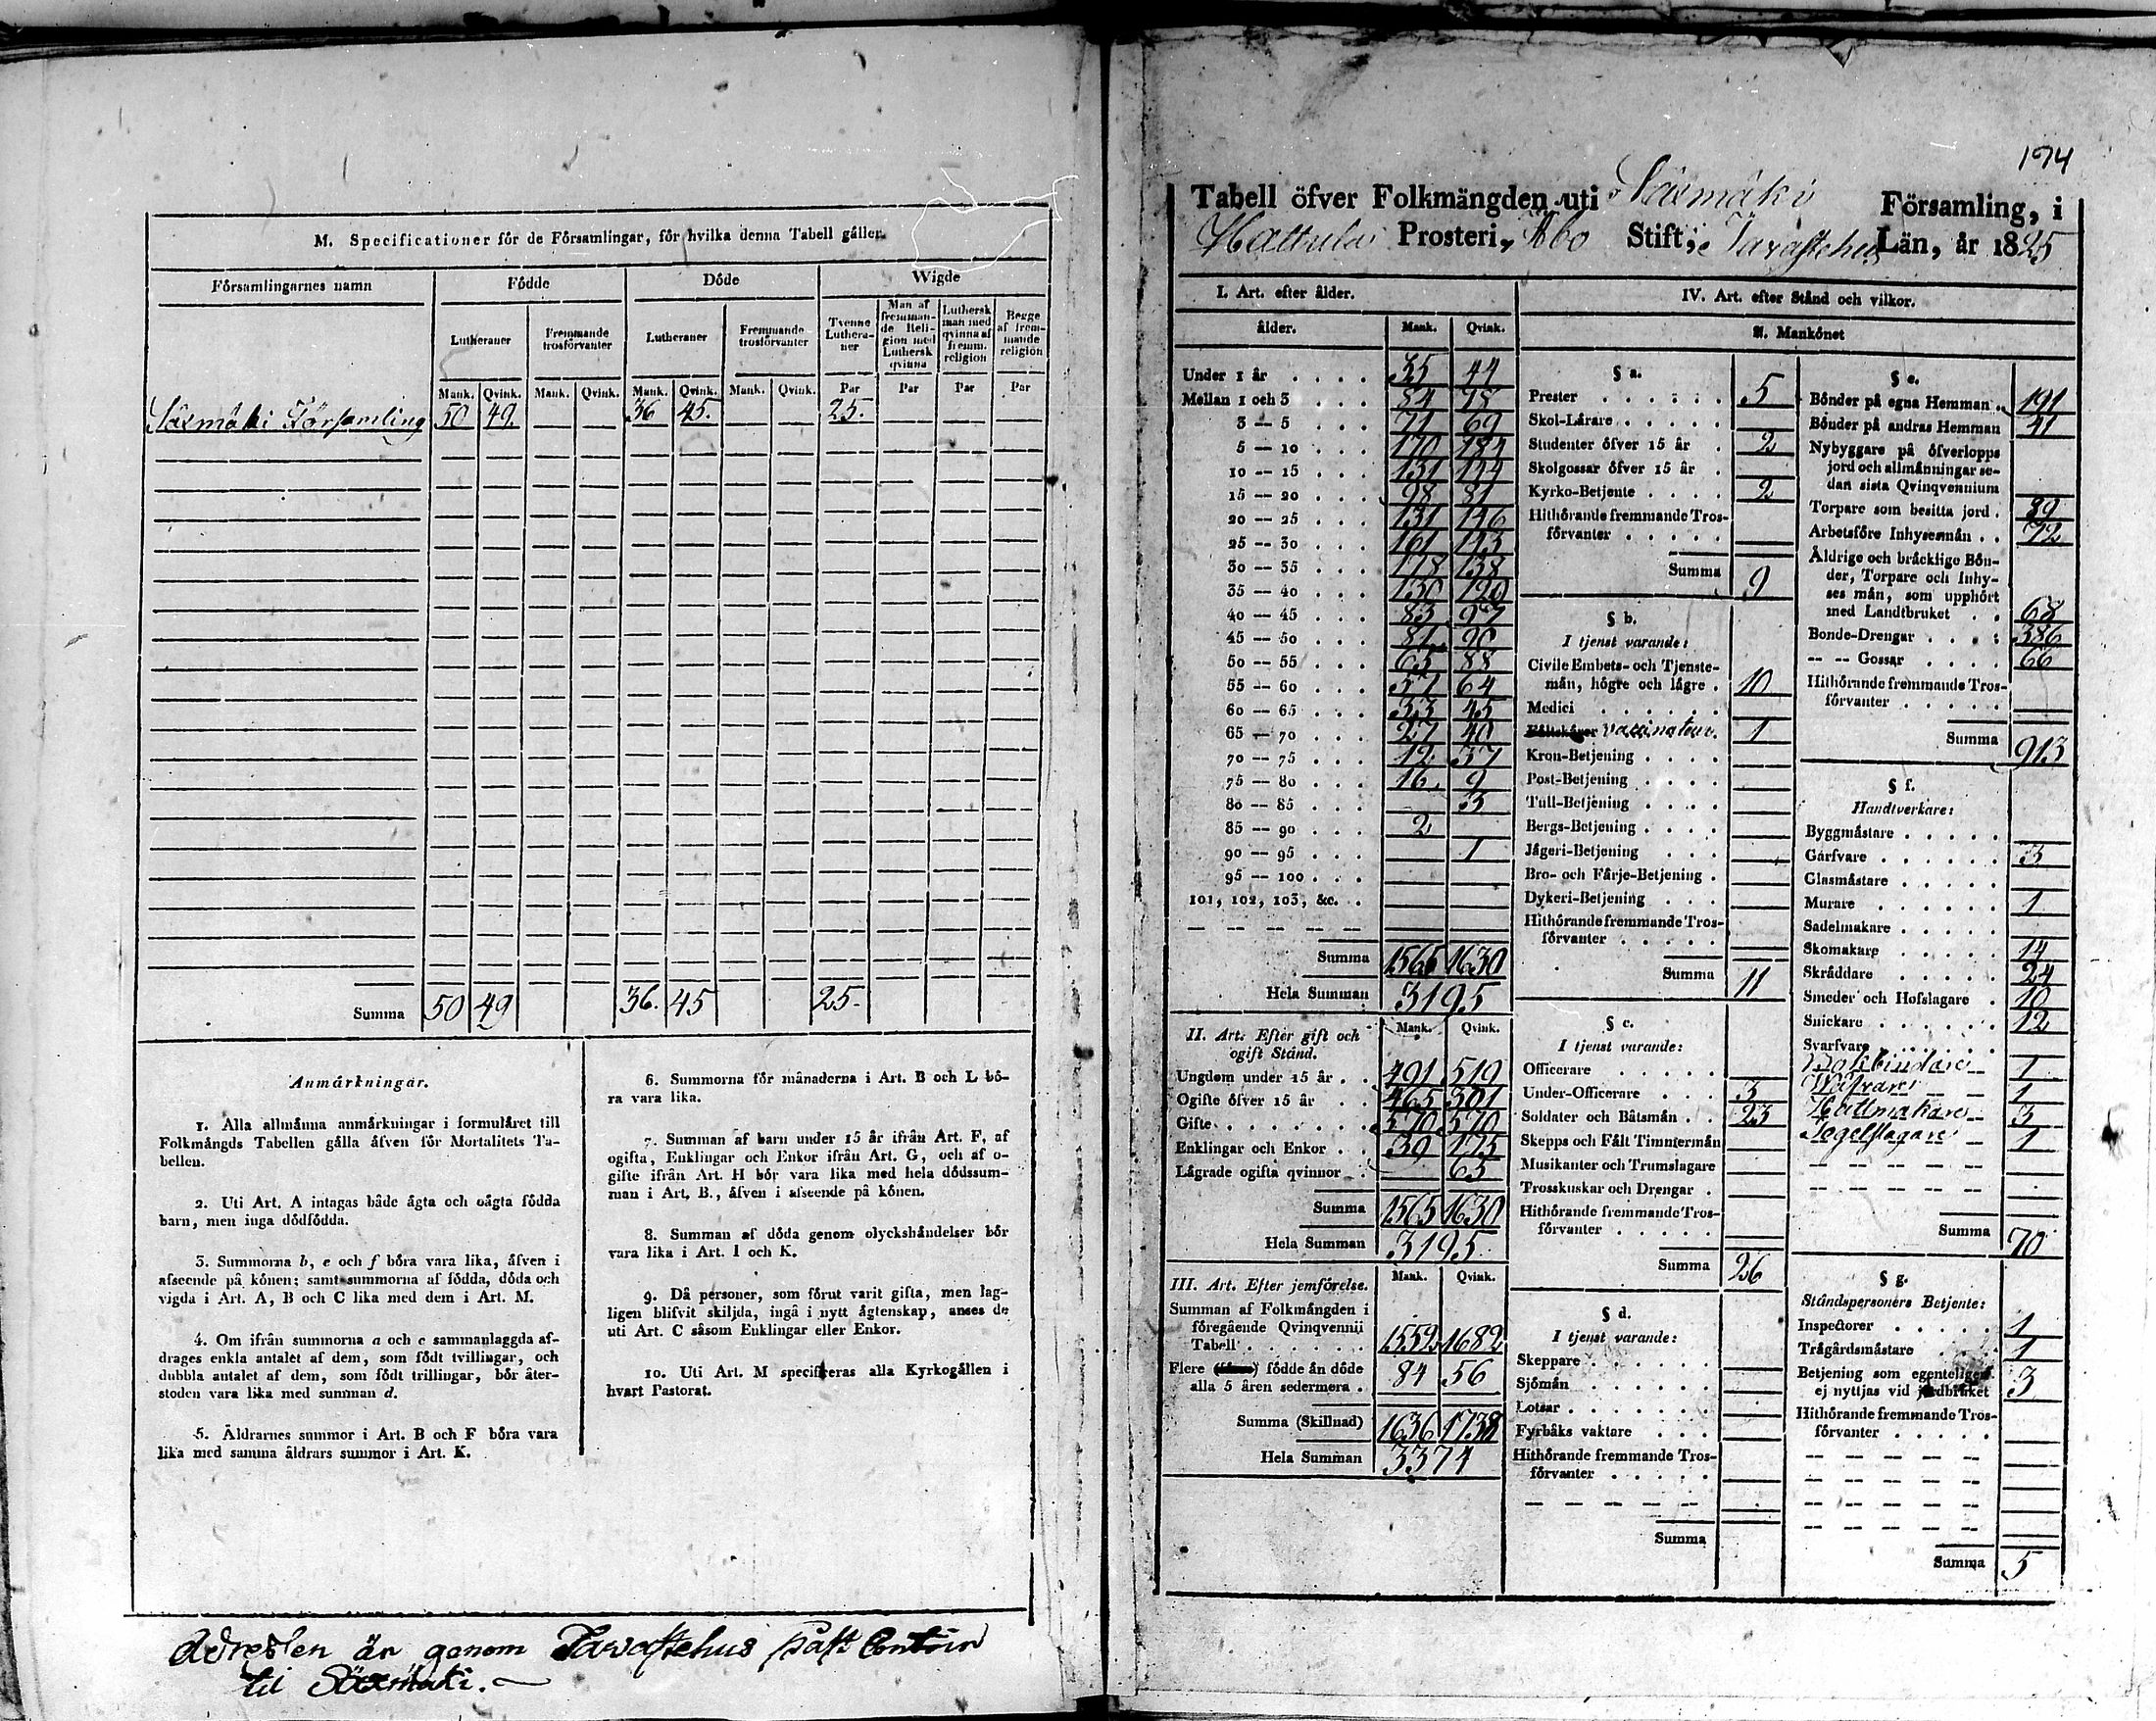 M. Specificationer för de Församlingar, för hvilka denna Tabell gäller.
Församlingarnes namn Födde Döde Wigde
Lutheraner Fremmande trosförvanter Lutheraner Fremmande trosförvanter Tvenne Lutheraner Man af fremmande Religion med Luthersk qvinna Luthersk man med qvinna af fremm. religion Begge af fremmande religion
Mank. Qvink. Mank. Qvink. Mank. Qvink. Mank. Qvink. Par Par Par Par
Säxmäki Församling 50 49. 36 45. 25.
Summa 50 49 36. 45 25.
Anmärkningar.
1. Alla allmänna anmärkningar i formuläret till
Folkmängds Tabellen gälla äfven för Mortalitets Ta-
bellen.
2. Uti Art. A intagas både ägta och oägta födda
barn, men inga dödfödda.
3. Summorna b, e och f böra vara lika, äfven i
afseende på könen; samt summorna af födda, döda och
vigda i Art. A, B och C lika med dem i Art. M.
4. Om ifrån summorna a och c sammanlaggda af-
drages enkla antalet af dem, som födt tvillingar, och
dubbla antalet af dem, som födt trillingar, bör åter-
stoden vara lika med summan d.
5. Åldrarnes summor i Art. B och F böra vara
lika med samma åldrars summor i Art. K.
6. Summorna för månaderna i Art. B och L bö-
ra vara lika.
7. Summan af barn under 15 år ifrån Art. F, af
ogifta, Enklingar och Enkor ifrån Art. G, och af o-
gifte ifrån Art. H bör vara lika med hela dödssum-
man i Art. B., äfven i afseende på könen.
8. Summan af döda genom olyckshändelser bör
vara lika i Art. I och K.
9. Då personer, som förut varit gifta, men lag-
ligen blifvit skiljda, ingå i nytt ägtenskap, anses de
uti Art. C såsom Enklingar eller Enkor.
10. Uti Art. M specificeras alla Kyrkogällen i
hvart Pastorat.
Adressen är genom Tavastehus Påst Contoir
til Säxmäki.
174
Tabell öfver Folkmängden uti Säxmäki Församling, i
Hattula Prosteri, Åbo Stift, Tavastehus Län, år 1825
I. Art. efter ålder.
ålder. Mank. Qvink.
Under 1 år 35 44
Mellan 1 och 3 84 98
3 — 5 71 69
5 — 10 170 184
10 — 15 131 124
15 — 20 98 81
20 — 25 131 146
25 — 30 161 143
30 — 35 178 138
35 — 40 130 129
40 — 45 83 97
45 — 50 81 90
50 — 55 65 88
55 — 60 57 64
60 — 65 33 45
65 — 70 27 40
70 — 75 12 37
75 — 80 16. 9
80 — 85 3
85 — 90 2
90 — 95 1
95 — 100
101, 102, 103, &c.
Summa 1565 1630
Hela Summan 3195
II. Art. Efter gift och
ogift Stånd. Mank. Qvink.
Ungdom under 15 år 491 519
Ogifte öfver 15 år 465 301
Gifte 570 570
Enklingar och Enkor 39 175
Lägrade ogifta qvinnor 65
Summa 1565 1630
Hela Summan 3195
III. Art. Efter jemförelse. Mank. Qvink.
Summan af Folkmängden i
föregående Qvinqvennii
Tabell 1552 1682
Flere födde än döde
alla 5 åren sedermera 84 56
Summa (Skillnad) 1636 1738
Hela Summan 3374
IV. Art. efter Stånd och vilkor.
A. Mankönet
§ a.
Prester 5
Skol-Lärare
Studenter öfver 15 år 2
Skolgossar öfver 15 år
Kyrko-Betjente 2
Hithörande fremmande Tros-
förvanter
Summa 9
§ b.
I tjenst varande:
Civile Embets- och Tjenste-
män, högre och lägre 10
Medici
Fältskärer vaccinateur. 1
Kron-Betjening
Post-Betjening
Tull-Betjening
Bergs-Betjening
Jägeri-Betjening
Bro- och Färje-Betjening
Dykeri-Betjening
Hithörande fremmande Tros-
förvanter
Summa 11
§ c.
I tjenst varande:
Officerare
Under-Officerare 3
Soldater och Båtsmän 23
Skepps och Fält Timmermän
Musikanter och Trumslagare
Trosskuskar och Drengar
Hithörande fremmande Tros-
förvanter
Summa 26
§ d.
I tjenst varande:
Skeppare
Sjömän
Lotsar
Fyrbåks vaktare
Hithörande fremmande Tros-
förvanter
Summa
§ e.
Bönder på egna Hemman 191
Bönder på andras Hemman 41
Nybyggare på öfverlopps
jord och allmänningar se-
dan sista Qvinqvennium
Torpare som besitta jord 89
Arbetsföre Inhysesmän 72
Äldrige och bräcklige Bön-
der, Torpare och Inhy-
ses män, som upphört
med Landtbruket 68
Bonde-Drengar 386
— — Gossar 66
Hithörande fremmande Tros-
förvanter
Summa 913
§ f.
Handtverkare:
Byggmästare
Garfvare 3
Glasmästare
Murare 1
Sadelmakare
Skomakare 14
Skräddare 24
Smeder och Hofslagare 10
Snickare 12
Svarfvare
Bokbindare 1
Wäfvare 1
Hattmakare 3
Tegelslagare 1
Summa 70
§ g.
Ståndspersoners Betjente:
Inspectorer 1
Trägårdsmästare 1
Betjening som egenteligen
ej nyttjas vid jordbruket 3
Hithörande fremmande Tros-
förvanter
Summa 5